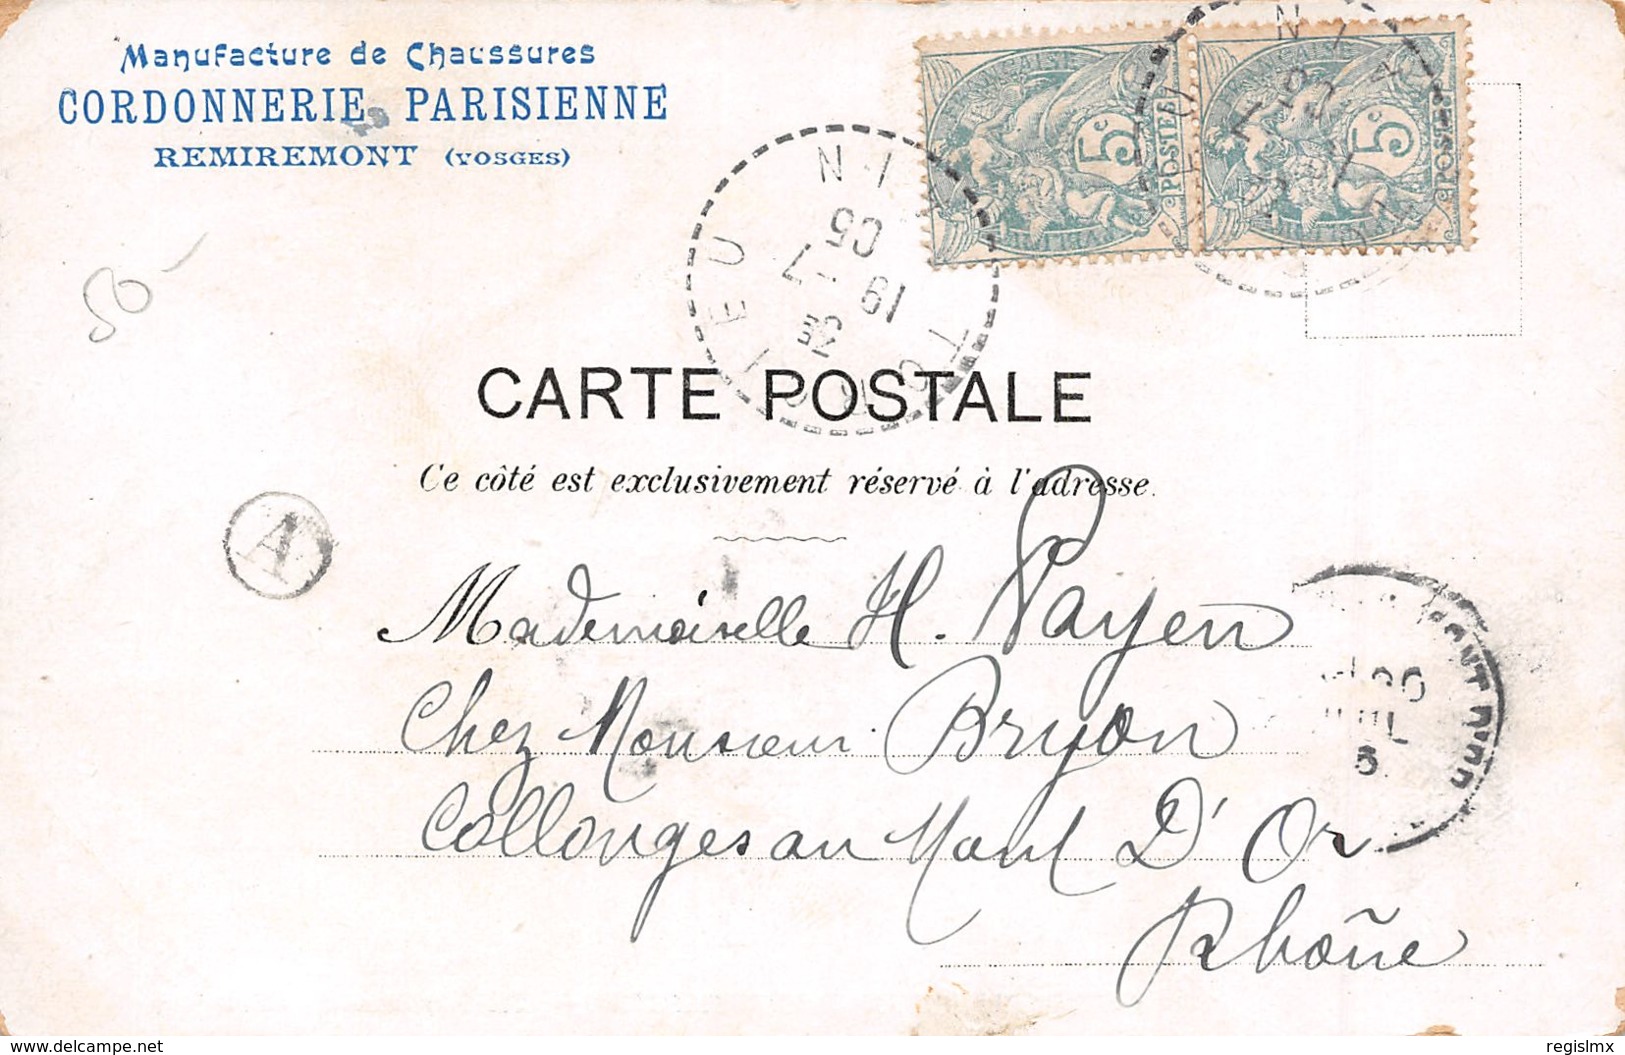 Manufacture de Chaussures
CORDONNERIE PARISIENNE
REMIREMONT (VOSGES)
5c
POSTES
5c
POSTES
19 -7
05
50-
CARTE POSTALE
Ce côté est exclusivement réservé à l'adresse.
A
Mademoiselle H. Payen
Chez Monsieur Bryon
Collonges au Mont D'Or
Rhône
delcampe.net
regislmx